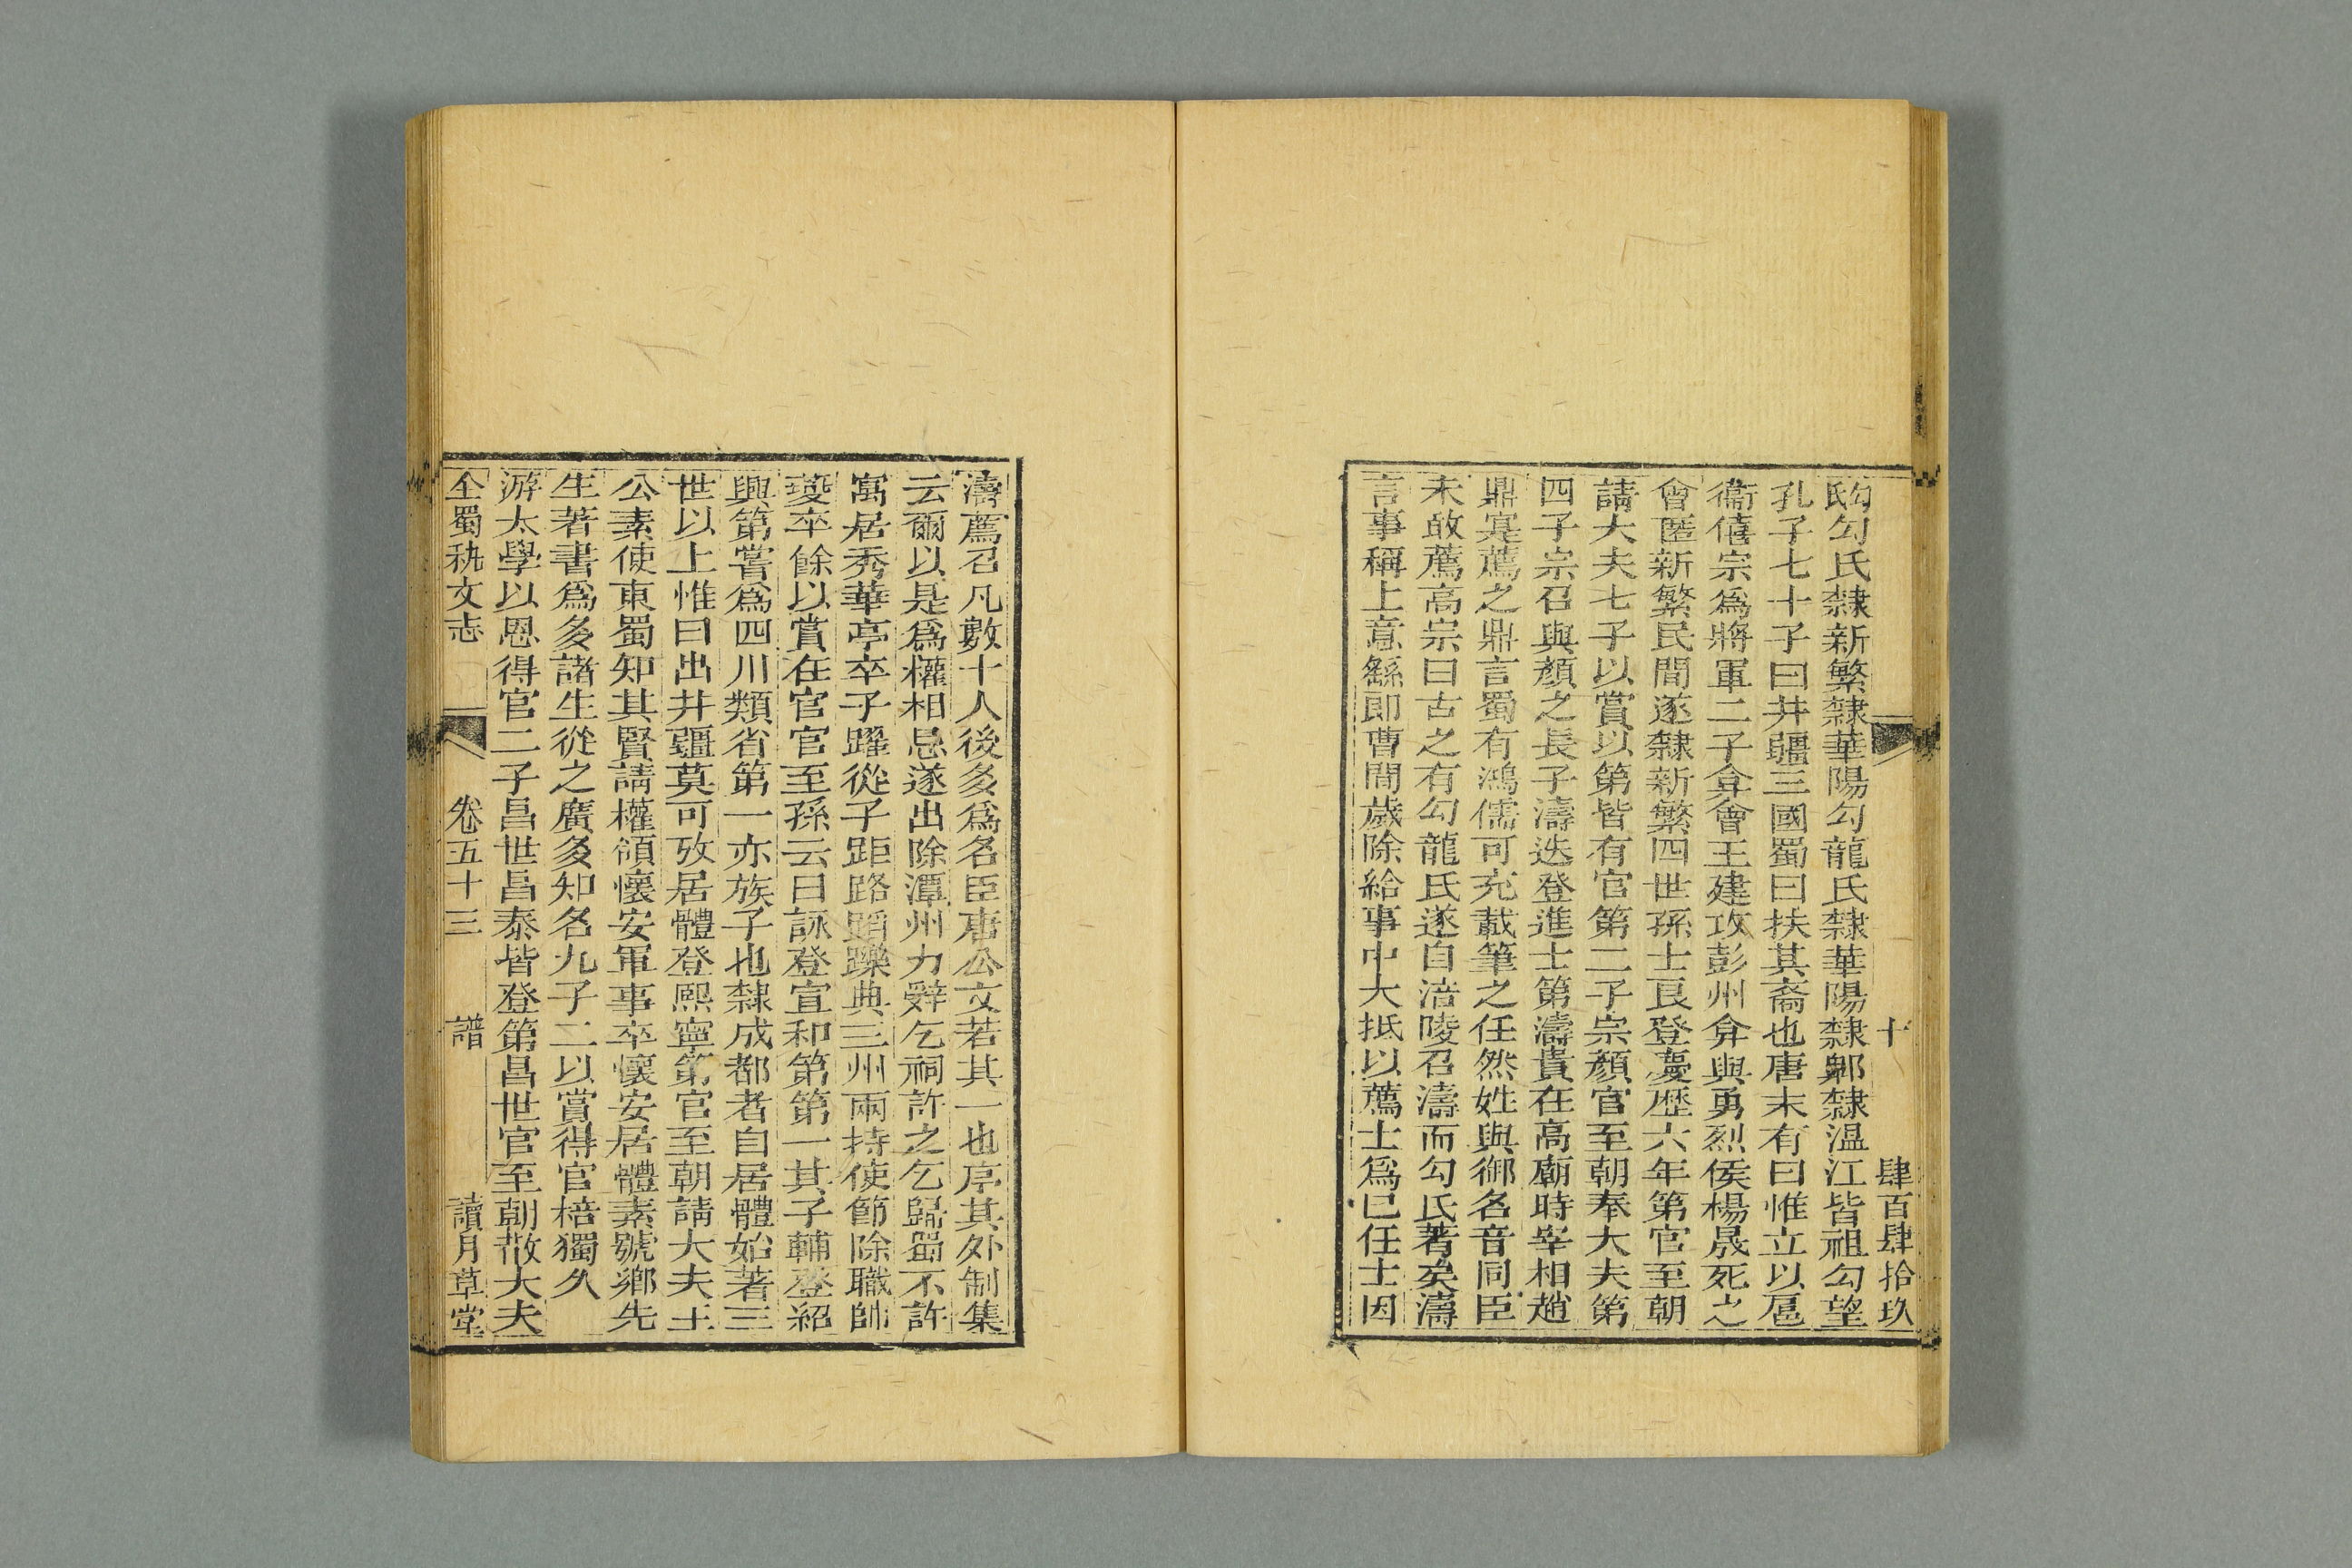 十 肆百肆拾玖
氏勾氏隸新繁隸華陽勾龍氏隸華陽隸郫隸温江皆祖勾望
孔子七十子曰井疆三國蜀曰扶其裔也唐末有曰惟立以扈
衞僖宗爲將軍二子弇會王建攻彭州弇與勇烈侯楊晟死之
會匿新繁民間遂隸新繁四世孫士良登慶歴六年第官至朝
請大夫七子以賞以第皆有官第二子宗顔官至朝奉大夫第
四子宗召與顔之長子濤迭登進士第濤貴在高廟時宰相趙
鼎寔薦之鼎言蜀有鴻儒可充載筆之任然姓與御名音同臣
未敢薦高宗曰古之有勾龍氏遂自涪陵召濤而勾氏著矣濤
言事稱上意繇郎曹間歲除給事中大抵以薦士爲已任士因
濤薦召凡數十人後多爲名臣唐公文若其一也序其外制集
云爾以是爲權相忌遂出除潭州力辤乞祠許之乞歸蜀不許
寓居秀華亭卒子躍從子距路蹈躒典三州兩持使節除職帥
夔卒餘以賞在官官至孫云曰詠登宣和第第一其子輔登紹
興第嘗爲四川類省第一亦族子也隸成都者自居體始著三
世以上惟曰出井疆莫可攷居體登熙寧第官至朝請大夫王
公素使東蜀知其賢請權領懷安軍事卒懷安居體素號鄉先
生著書爲多諸生從之廣多知名九子二以賞得官棓獨久
游太學以恩得官二子昌世昌泰皆登第昌世官至朝散大夫
全蜀秇文志 卷五十三 譜 讀月草堂